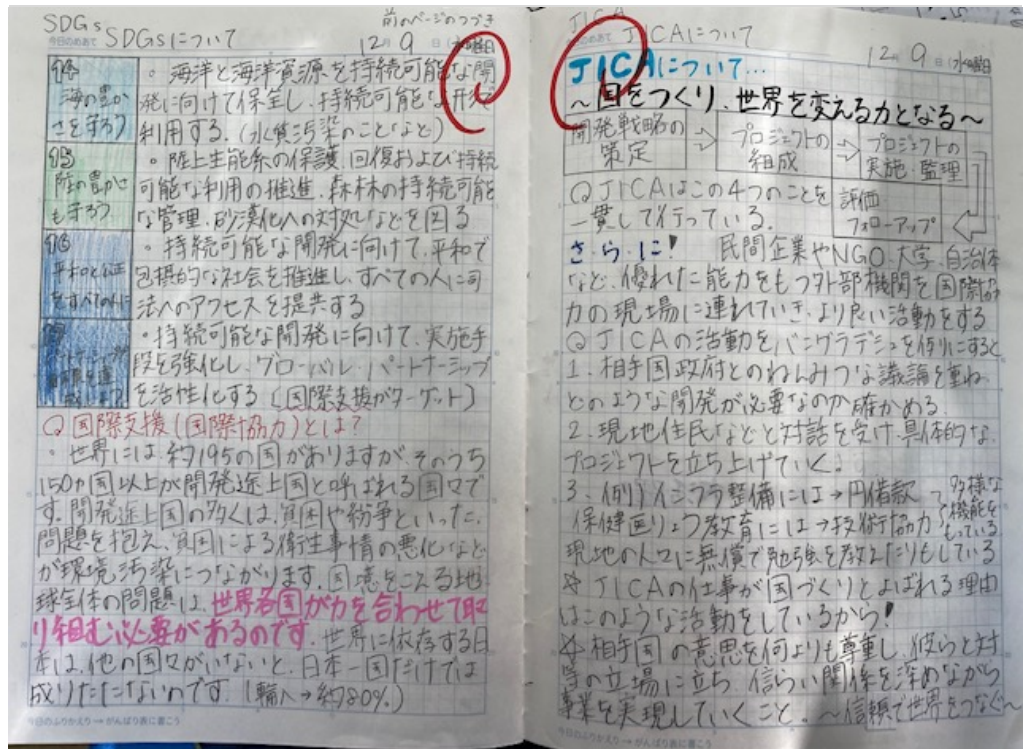 SDGs
前のページのつづき
今日のめあて SDGsについて
12月 9日(水曜日)
14 海の豊かさを守ろう
・海洋と海洋資源を持続可能な開
発に向けて保全し、持続可能な形で
利用する。(水質汚染のことなど)
15 陸の豊かさも守ろう
・陸上生態系の保護、回復および持続
可能な利用の推進、森林の持続可能
な管理、砂漠化への対処などを図る
16 平和と公正をすべての人に
・持続可能な開発に向けて、平和で
包摂的な社会を推進し、すべての人に司
法へのアクセスを提共する
17
・持続可能な開発に向けて、実施手
段を強化し、グローバル・パートナーシップ
を活性化する(国際支援がターゲット)
Q 国際支援(国際協力)とは?
・世界には、約195の国がありますが、そのうち
150カ国以上が開発途上国と呼ばれる国々で
す。開発途上国の多くは、貧困や紛争といった、
問題を抱え、貧困による衛生事情の悪化など
が環境汚染につながります。国境をこえる地
球全体の問題は、世界各国が力を合わせて取
り組む必要があるのです。世界に依存する日
本は、他の国々がいないと、日本一国だけでは
成りたたないのです。(輸入→約80%)
今日のふりかえり→がんばり表に書こう
JICA
JICAについて
12月 9日(水曜日)
JICAについて…
~国をつくり、世界を変える力となる~
開発戦略の策定 ⇒ プロジェクトの組成 ⇒ プロジェクトの実施・監理
評価 フォローアップ
Q JICAはこの4つのことを
一貫して行っている。
さ・ら・に! 民間企業やNGO、大学、自治体
など、優れた能力をもつ外部機関を国際協
力の現場に連れていき、より良い活動をする
Q JICAの活動をバングラデシュを例にすると
1. 相手国政府とのねんみつな議論を重ね
どのような開発が必要なのか確かめる。
2. 現地住民などと対話を受け、具体的な、
プロジェクトを立ち上げていく。
3. 例)インフラ整備には→円借款
保健医りょう教育には→技術協力
多様な機能をもっている
現地の人々に無償で勉強を教えたりもしている
☆JICAの仕事が国づくりとよばれる理由
はこのような活動をしているから!
☆相手国の意思を何よりも尊重し、彼らと対
等の立場に立ち、信らい関係を深めながら
事業を実現していくこと。~信頼で世界をつなぐ~
今日のふりかえり→がんばり表に書こう